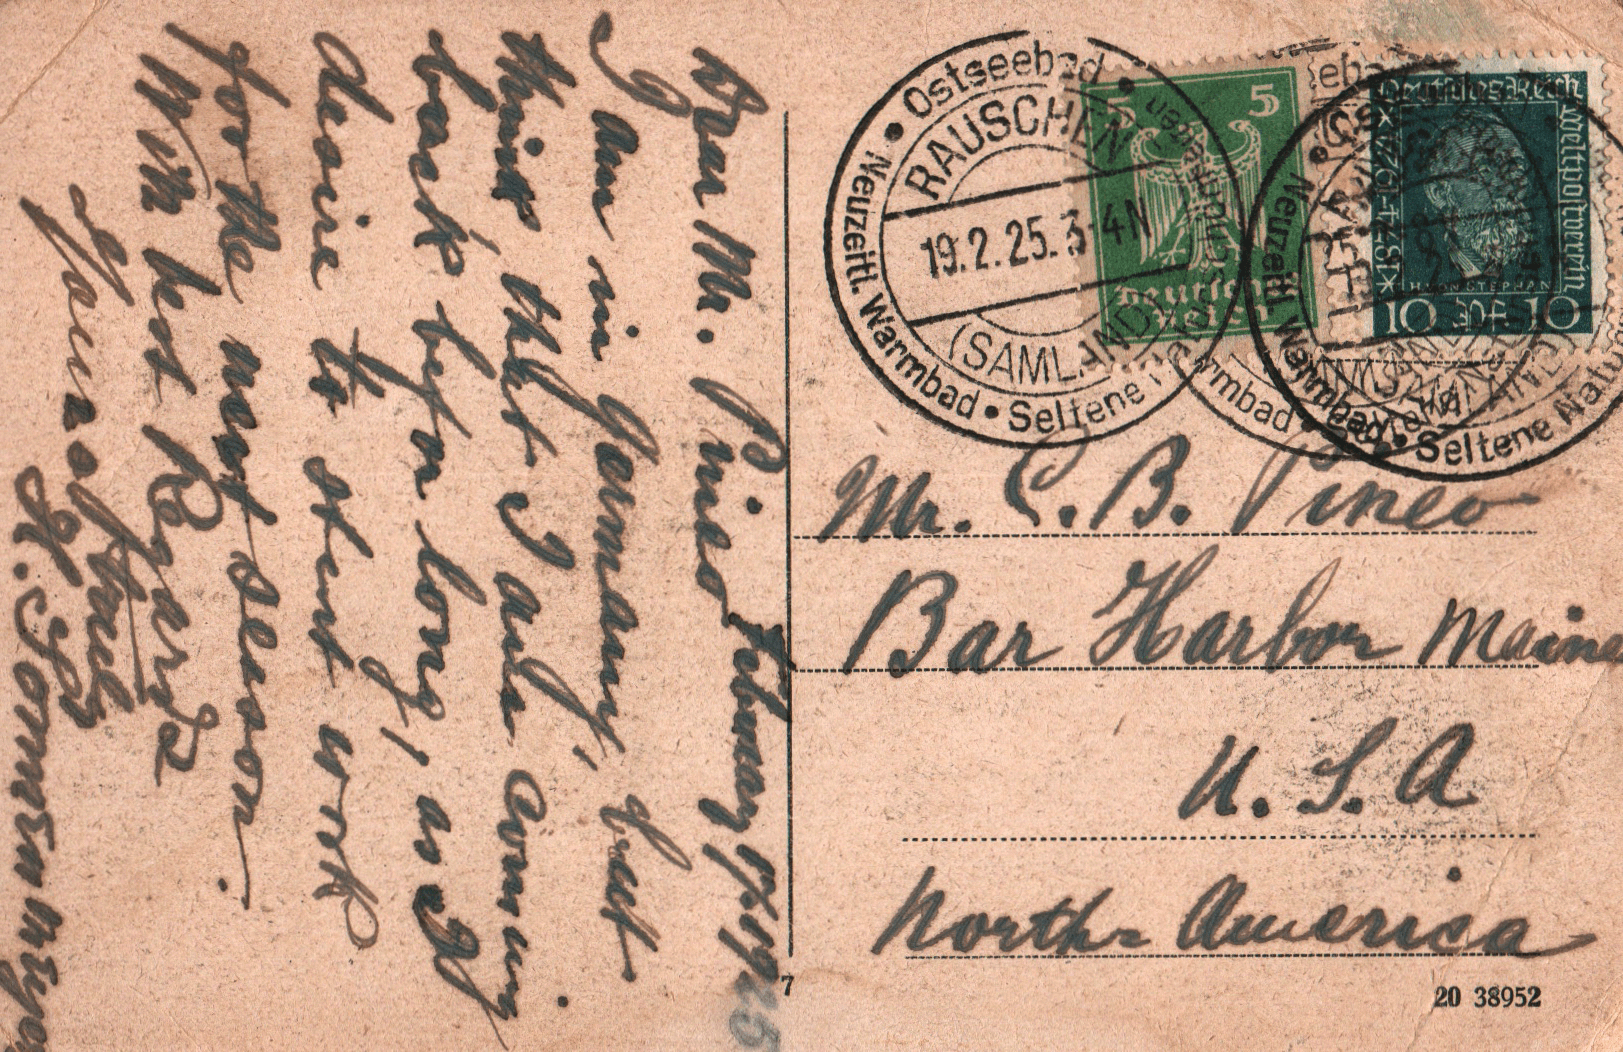 Dear Mr. Pineo February 17. 1925
I am in Germany, but
think that I ade coming
back befor long, as I
desire to start work
for the next season.
With best Regards
Yours truly
H.
Ostseebad
RAUSCHEN
19.2.25.3-4N
(SAMLAND)
Neuzeitl. Warmbad • Seltene
5 5
Deutsches Reich
Deutsches Reich
Weltpostverein
1874-1924
H. VON STEPHAN
10 10
Neuzeitl. Warmbad • Seltene Natur
Mr. C. B. Pineo
Bar Harbor Maine
U. S. A
North-America
7
20 38952